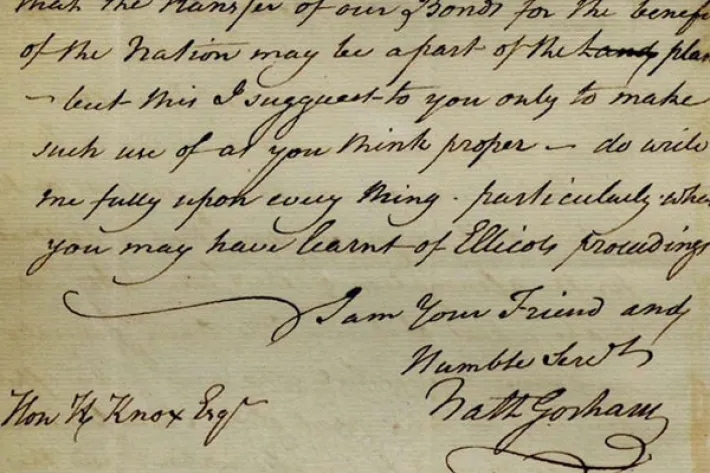 that the transfer of our Bonds for the benefi
of the Nation may be a part of the Land plan
– but this I suggest to you only to make
such use of as you think proper – do write
me fully upon every thing. particularly wha
you may have learnt of Ellicots proceedings
I am Your Friend and
Humble Servt
Hon H Knox Esqr
Nath Gorham